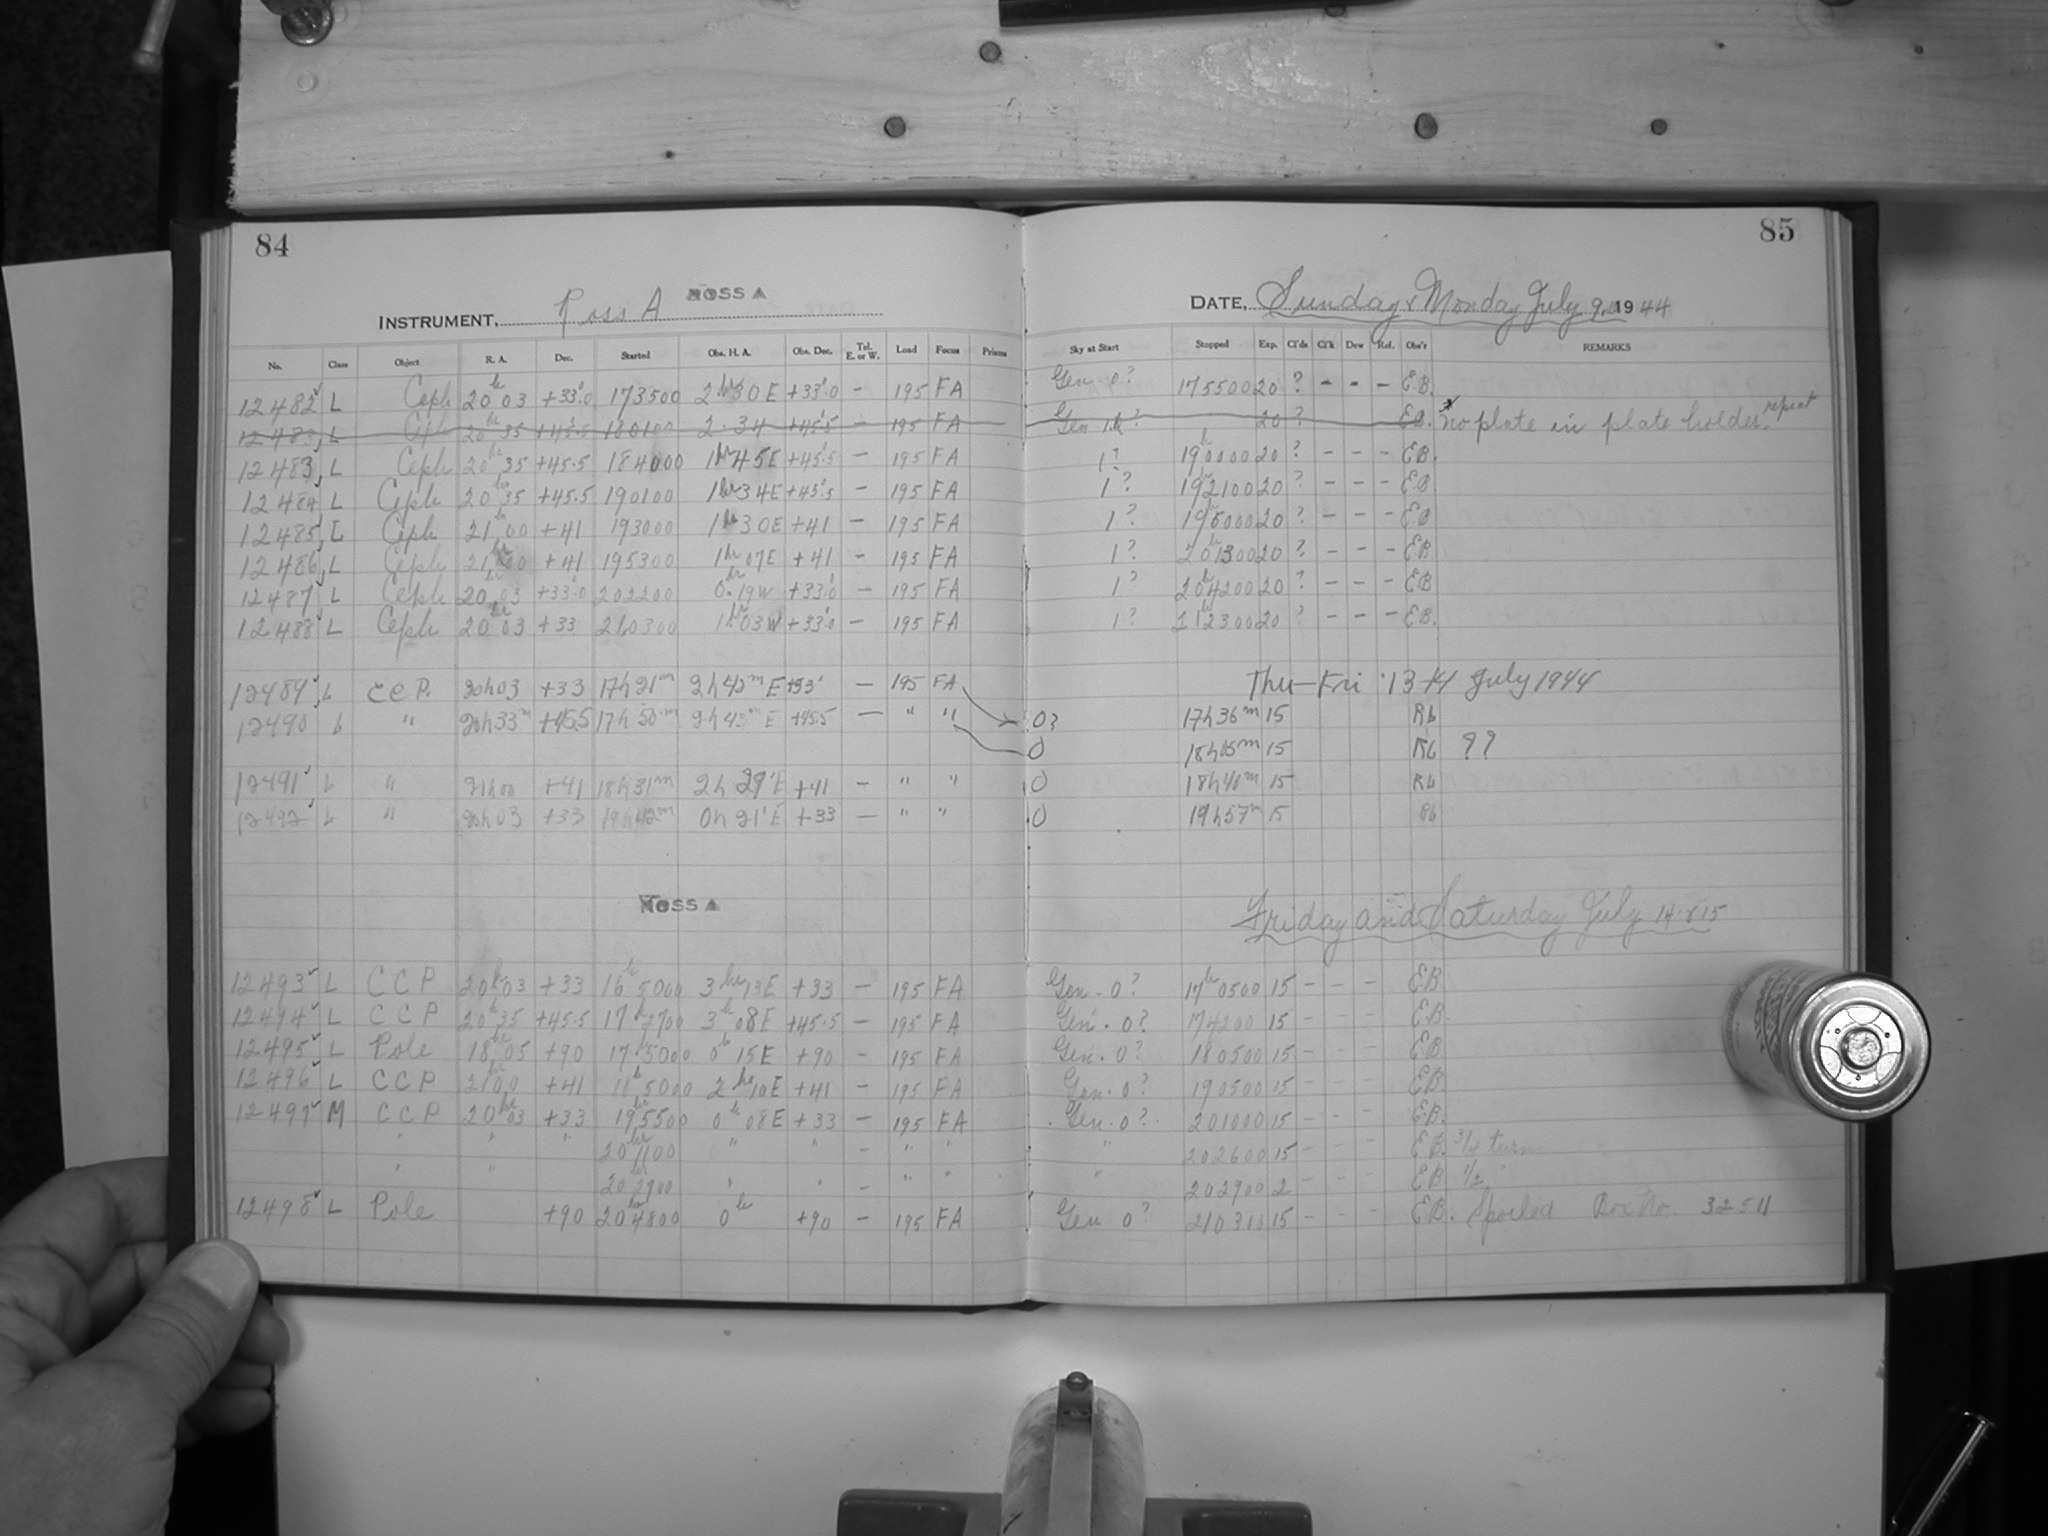 84
85
ROSS A
INSTRUMENT, Ross A
DATE, Sunday & Monday July 9, 1944
No. Class Object R. A. Dec. Started Obs. H. A. Obs. Dec. Tel. E. or W. Load Focus Prisms Sky at Start Stopped Exp. Cl'ds Cl'k Dew Ref. Obs'r REMARKS
12482 L Ceph 20h 03 +33.0 173500 2hr30E +33.0 - 195 FA Gen. 0? 175500 20 ? - - - E.B.
12483 L Ceph 20hr 35 +45.5 180100 2.34 +45.5 - 195 FA Gen 20 ? EB. no plate in plate holder. repeat
12483 L Ceph 20hr 35 +45.5 184000 1hr45E +45.5 - 195 FA 1? 190000 20 ? - - - EB.
12484 L Ceph 20h 35 +45.5 190100 1hr34E +45.5 - 195 FA 1? 192100 20 ? - - - EB
12485 L Ceph 21h 00 +41 193000 1h30E +41 - 195 FA 1? 195000 20 ? - - - EB
12486 L Ceph 21hr 00 +41 195300 1hr07E +41 - 195 FA 1? 20h1300 20 ? - - - EB
12487 L Ceph 20hr 03 +33.0 202200 0hr19W +33.0 - 195 FA 1? 20h4200 20 ? - - - EB
12488 L Ceph 20hr 03 +33 210300 1hr03W +33.0 - 195 FA 1? 212300 20 ? - - - EB.
Thu-Fri 13-14 July 1944
12489 L C C P. 20h03 +33 17h21m 2h42m E +33 - 195 FA 0? 17h36m 15 Rb
12490 L " 20h33m +45.5 17h50m 2h43m E +45.5 - " " 0 18h05m 15 Rb ??
12491 L " 21h00 +41 18h31m 2h 29'E +41 - " " 0 18h46m 15 Rb
12492 L " 20h03 +33 19h42m 0h21'E +33 - " " 0 19h57m 15 Rb
ROSS A
Friday and Saturday July 14 & 15
12493 L C C P 20h03 +33 16h5000 3hr13E +33 - 195 FA Gen. 0? 17h0500 15 - - - EB
12494 L C C P 20h35 +45.5 17h2700 3h08E +45.5 - 195 FA Gen. 0? 174200 15 - - - E.B.
12495 L Pole 18hr05 +90 17h5000 0h 15E +90 - 195 FA Gen. 0? 180500 15 - - - EB
12496 L C C P 21h00 +41 18h5000 2hr10E +41 - 195 FA Gen. 0? 190500 15 - - - EB.
12497 M C C P 20hr03 +33 19hr5500 0h 08E +33 - 195 FA Gen. 0? 201000 15 - - - E.B.
" " " 20hr1100 " " - " " " 202600 15 - - - EB. 3/4 turn
" " 20h2700 " " - " " " 202900 2 - - - EB 1/2 "
12498 L Pole +90 20hr4800 0h +90 - 195 FA Gen. 0? 210310 15 - - - EB. Spoiled Box No. 32511